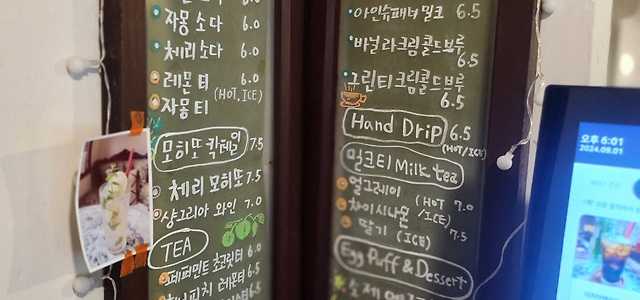 자몽 소다 6.0
체리소다 6.0
레몬 티 6.0
(HOT, ICE)
자몽 티
모히또 칵테일 7.5
체리 모히또 7.5
샹그리아 와인 7.0
TEA
페퍼민트 초코릿티 6.0
피치 레몬티 6.5
6.5
아인슈패너 밀크 6.5
바닐라크림콜드브루 6.5
그린티크림콜드브루 6.5
Hand Drip 6.5
(HOT/ICE)
밀크티 Milk tea
얼그레이 (HOT 7.0
차이시나몬 /ICE) 7.5
딸기 (ICE)
Egg Puff & Dessert
오후 6:01
2024.09.01